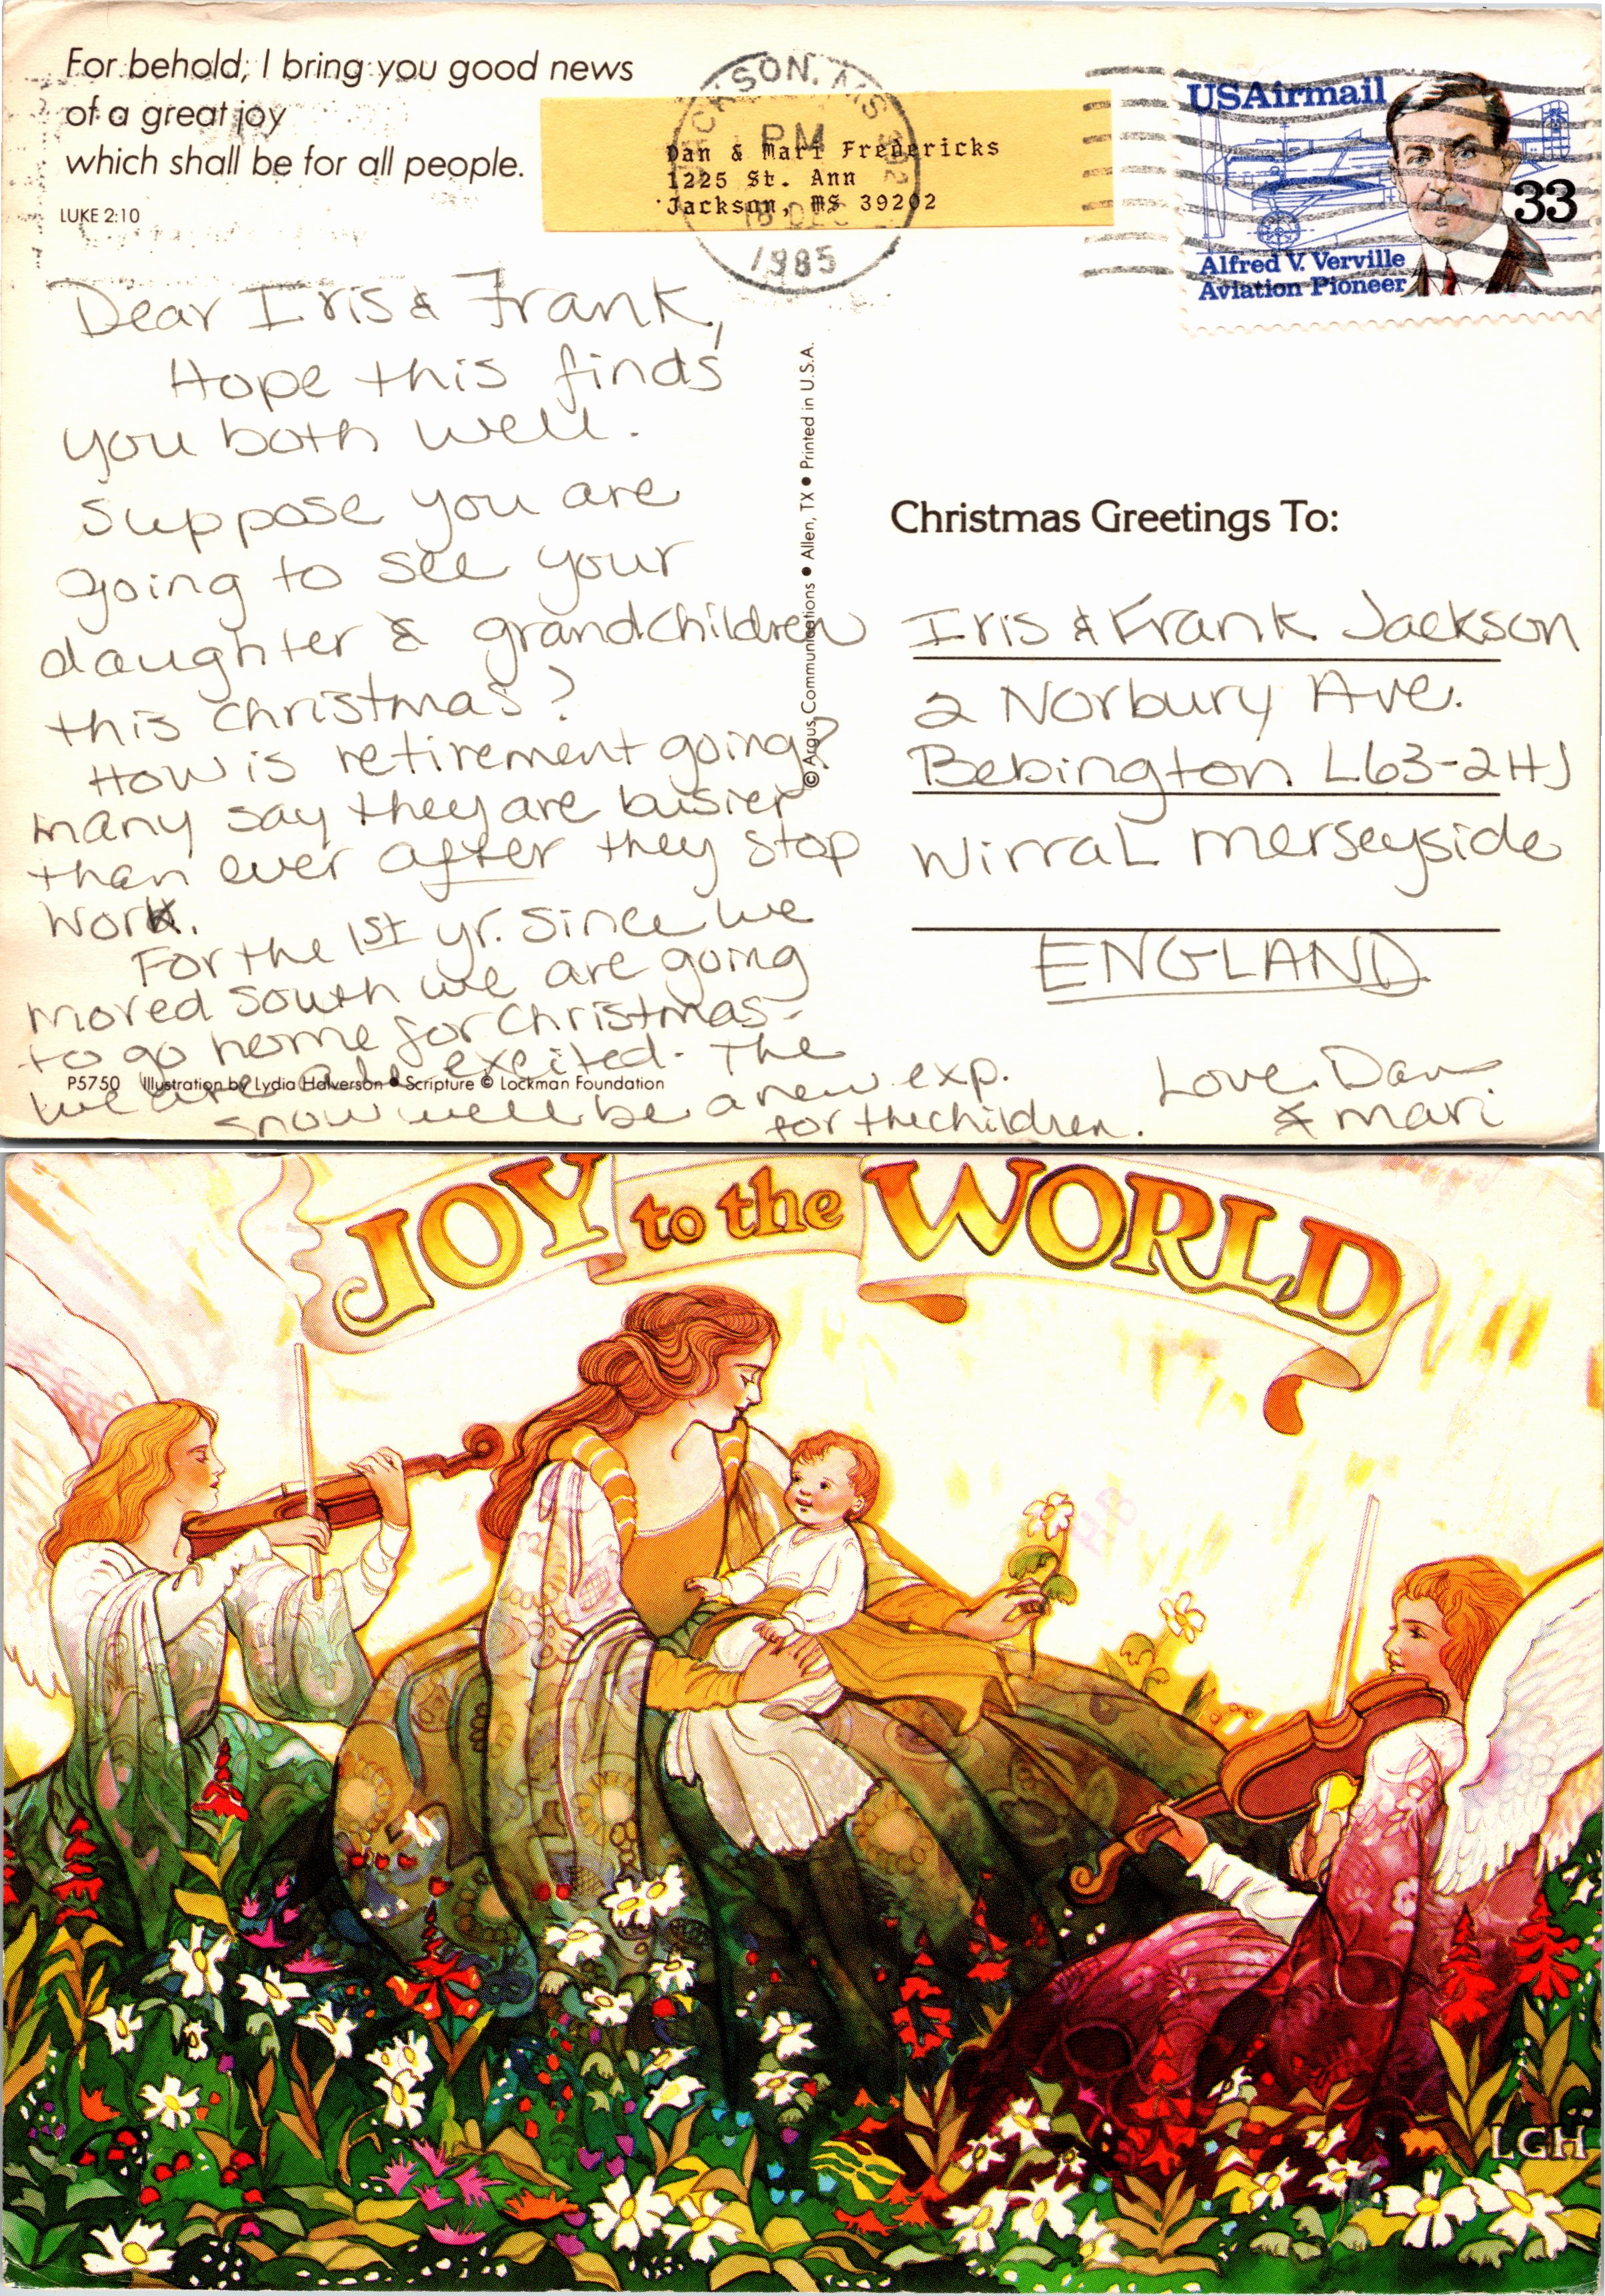 For behold, I bring you good news
of a great joy
which shall be for all people.
LUKE 2:10
JACKSON, MS 392
PM
18 DEC
1985
Dan & Mari Fredericks
1225 St. Ann
Jackson, MS 39202
USAirmail
33
Alfred V. Verville
Aviation Pioneer
Dear Iris & Frank,
Hope this finds
you both well.
Suppose you are
going to see your
daughter & grandchildren
this christmas?
How is retirement going?
many say they are busier
than ever after they stop
work.
For the 1st yr. since we
moved south we are going
to go home for Christmas-
we are all excited. The
snow will be a new exp.
for the children.
Love, Dan
& mari
© Argus Communications • Allen, TX • Printed in U.S.A.
Christmas Greetings To:
Iris & Frank Jackson
2 Norbury Ave.
Bebington L63-2HJ
Wirral merseyside
ENGLAND
P5750 Illustration by Lydia Halverson • Scripture © Lockman Foundation
JOY to the WORLD
LGH